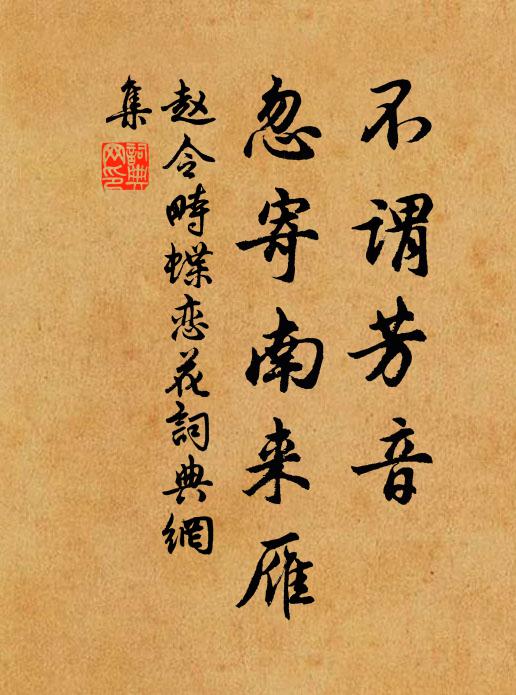 不谓芳音
忽寄南来雁
赵令畤蝶恋花词典網
集
詞典
网印